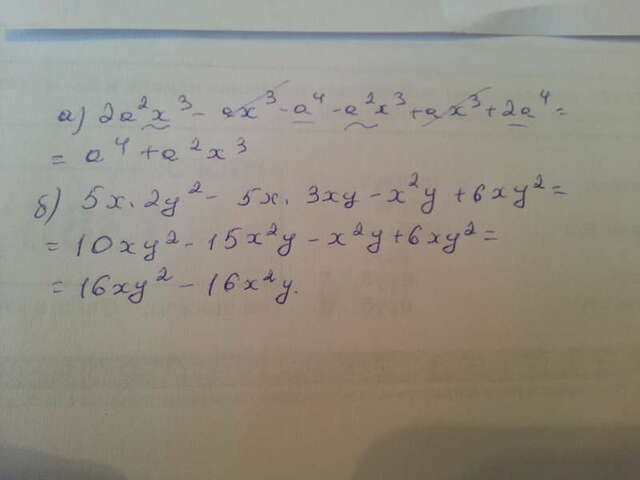 а) 2a²x³ - ax³ - a⁴ - a²x³ + ax³ + 2a⁴ =
= a⁴ + a²x³
б) 5x · 2y² - 5x · 3xy - x²y + 6xy² =
= 10xy² - 15x²y - x²y + 6xy² =
= 16xy² - 16x²y.